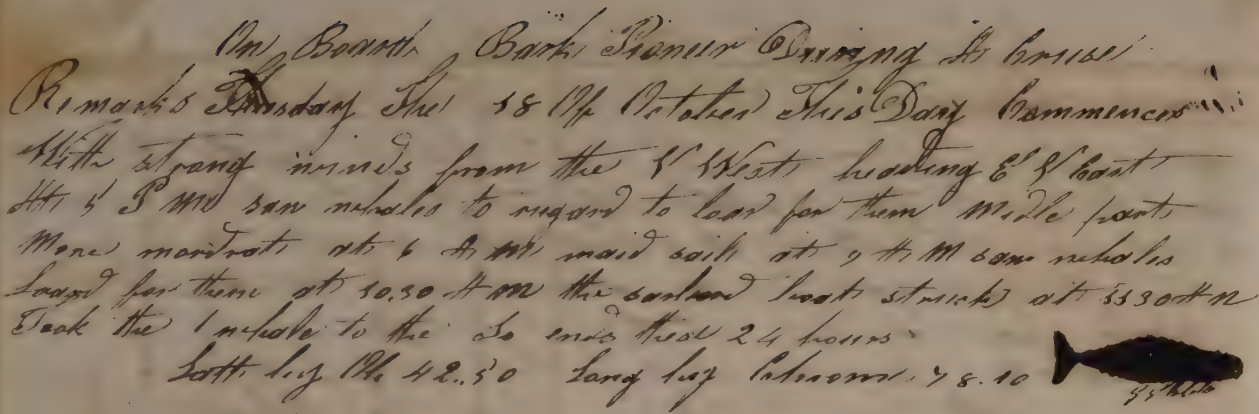 On Board Bark Pioneer During Its Cruise
Remarks Thusday The 18 Of October This Day Commences
With strong winds from the N West heading E N East
At 5 P M saw whales to regard to loar for them Midle part
More mordrat at 6 A M maid sail at 9 A M saw whales
Loard for them at 10.30 A M the larbord boat struck at 1130 A M
Took the 1 whale to the So ends thes 24 hours
Latt by Ob 42..50 Long by Cronom 78.10